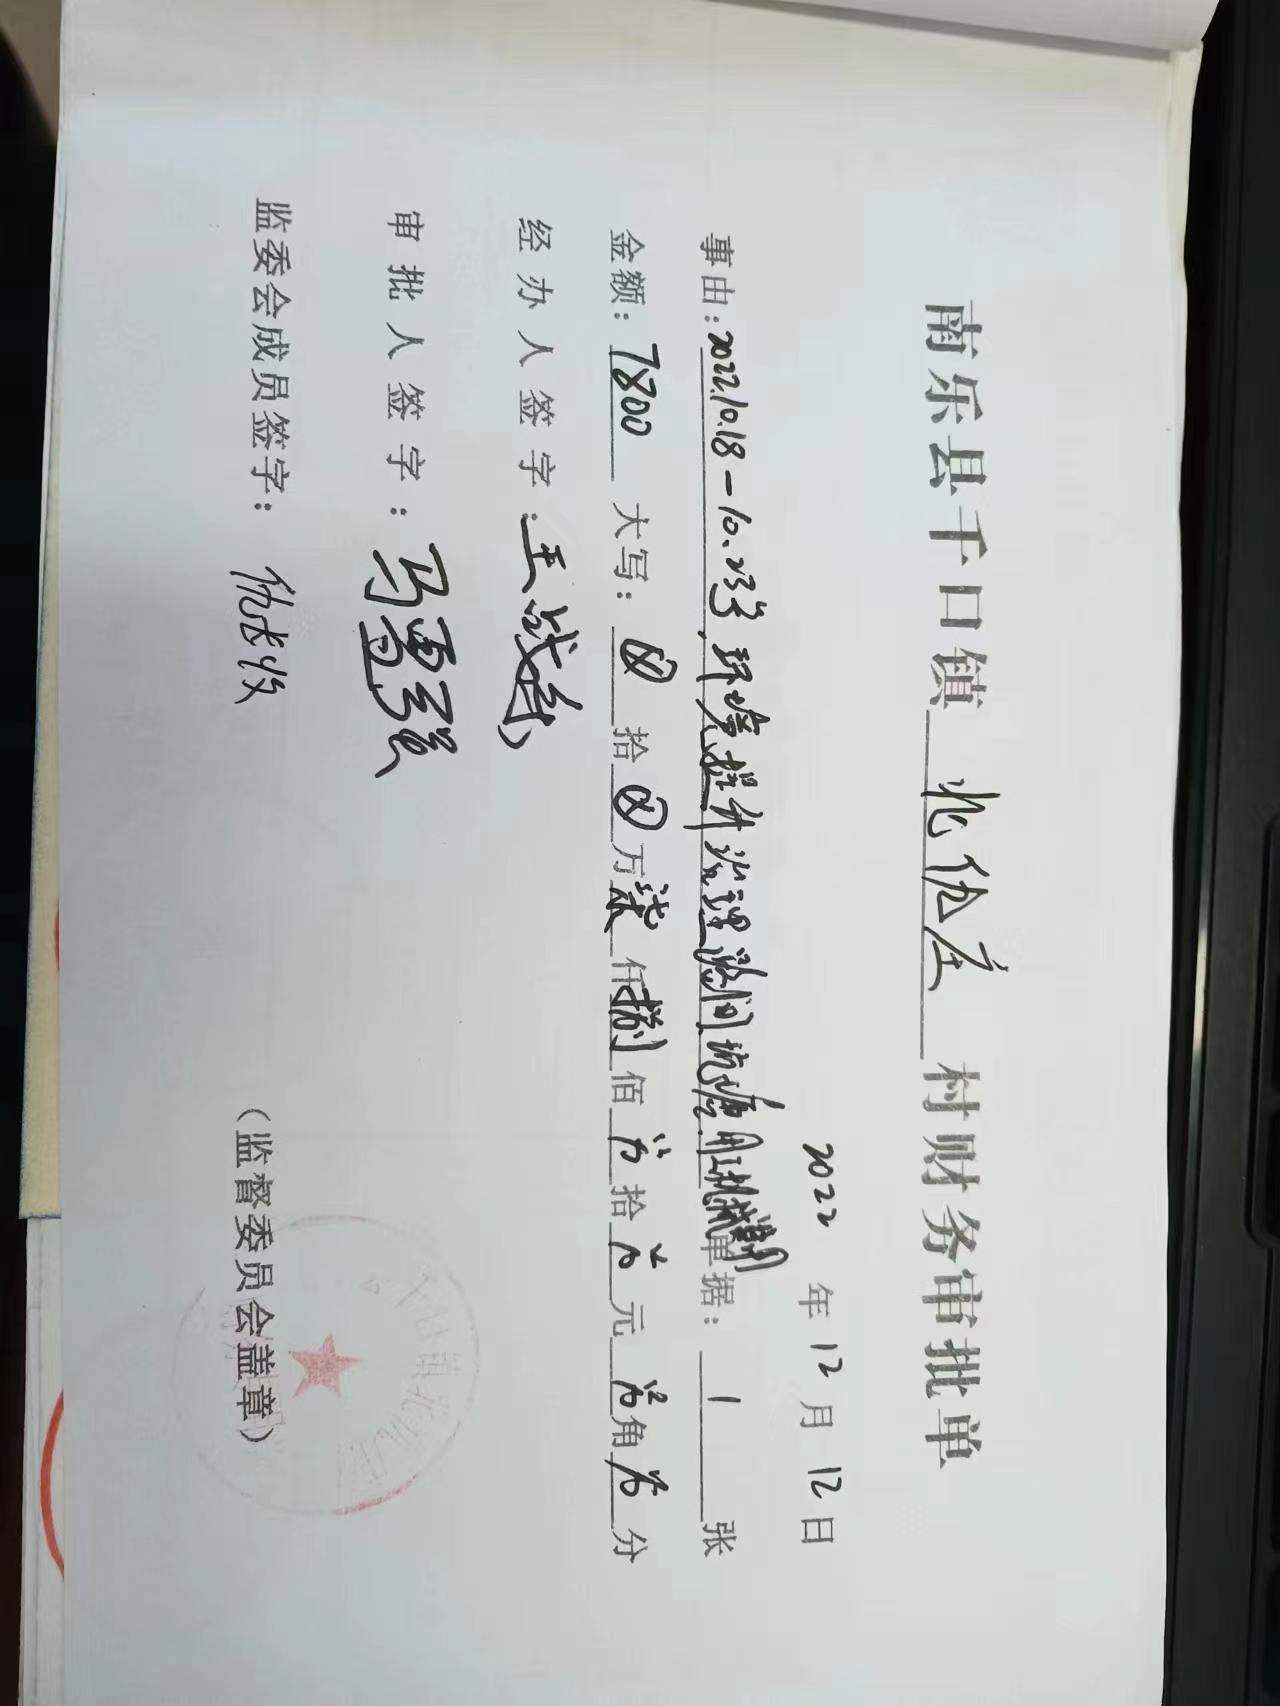 南乐县千口镇 北仇庄 村财务审批单
2022 年 12 月 12 日
事由：2022.10.18－10.23号 环境提升治理 坑塘用工机械费用 单据： 1 张
金额： 7800 大写： ⊗ 拾 ⊗ 万 柒 仟 捌 佰 零 拾 零 元 零 角 零 分
经办人签字：王战
审批人签字：马勇强
监委会成员签字： 仇
（监督委员会盖章）